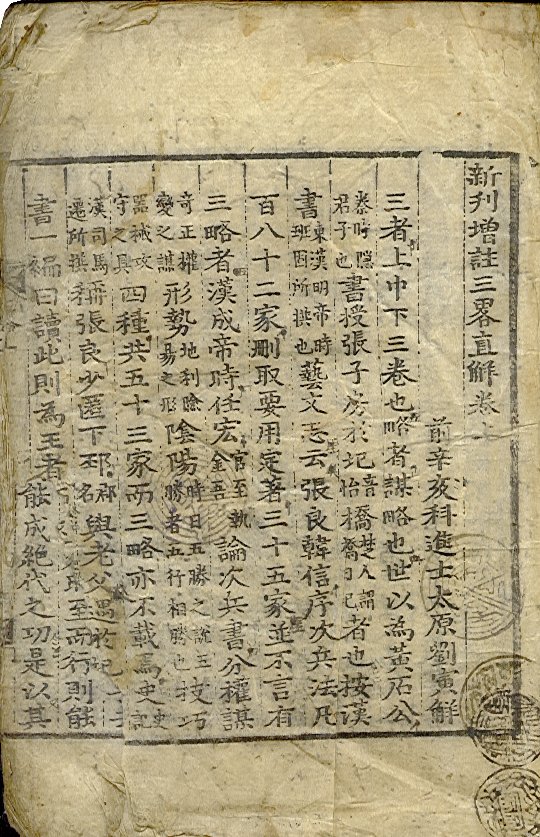 新刋增註三畧直解卷上
前辛亥科進士太原劉寅解
三者上中下三卷也略者謀略也世以為黃石公
秦時隱君子也書授張子房於圯音怡橋楚人謂橋曰圯者也按漢
書東漢明帝時班固所撰也藝文志云張良韓信序次兵法凡
百八十二家刪取要用定著三十五家並不言有
三略者漢成帝時任宏官至執金吾論次兵書分權謀
奇正權變之謀形勢地利險易之形陰陽時日五勝之說五勝者五行相勝也技巧
器械攻守之具四種共五十三家而三略亦不載焉史記
漢司馬遷所撰稱張良少匿下邳郡名與老父遇於圯上
至而行則能
書一編曰讀此則為王者
能成絶代之功是以其